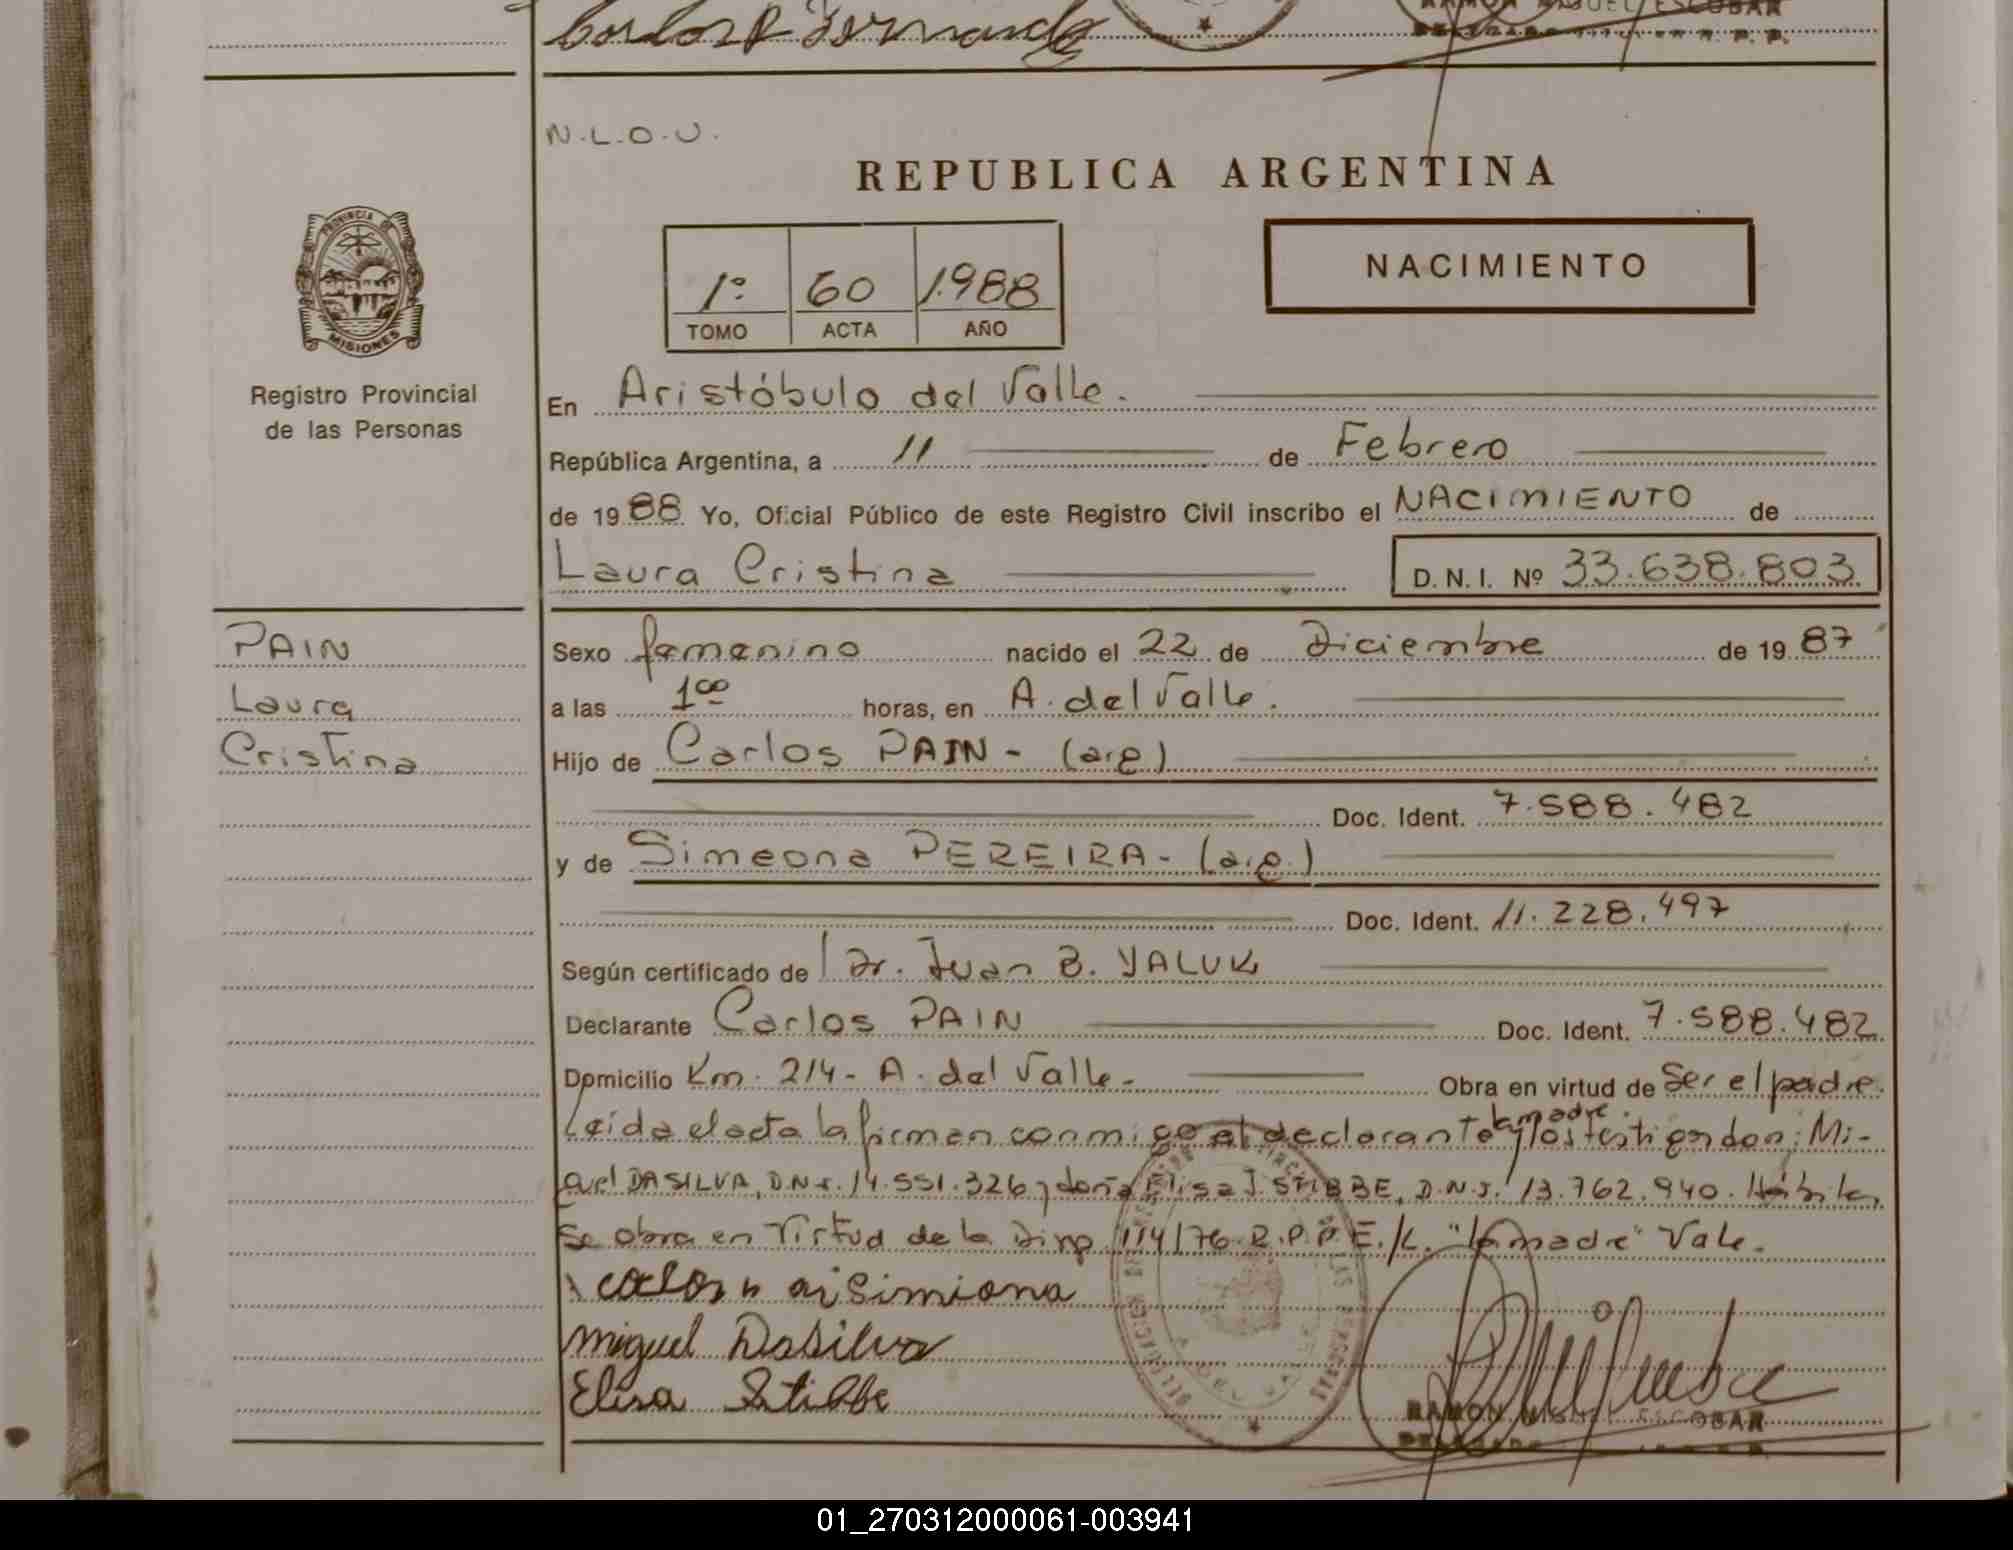 Carlos R Fernandez
RAMON MIGUEL ESCOBAR
N.L.O.U.
REPUBLICA ARGENTINA
PROVINCIA DE
MISIONES
1º 60 1.988
TOMO ACTA AÑO
NACIMIENTO
Registro Provincial
de las Personas
En Aristóbulo del Valle.
República Argentina, a 11 de Febrero
de 1988 Yo, Oficial Público de este Registro Civil inscribo el NACIMIENTO de
Laura Cristina D. N. I. Nº 33.638.803
PAIN
Laura
Cristina
Sexo femenino nacido el 22 de Diciembre de 1987
a las 1ºº horas, en A. del Valle.
Hijo de Carlos PAIN - (arg)
Doc. Ident. 7.588.482
y de Simeona PEREIRA - (arg.)
Doc. Ident. 11.228.497
Según certificado de Dr. Juan B. YALUK
Declarante Carlos PAIN Doc. Ident. 7.588.482
Domicilio Km. 214 - A. del Valle - Obra en virtud de Ser el padre.
la madre.
Leída el acta la firman conmigo el declarante y los testigos don: Mi-
guel DA SILVA, D.N.I. 14.551.326 y doña Elisa I. STIBBE, D.N.I. 13.762.940. Hábiles
Se obra en Virtud de la Disp 114/76 R.P.P. E./L. "la madre" Vale.
Simiona
Miguel Dasilva
Elisa Stibbe
RAMON MIGUEL ESCOBAR
01_270312000061-003941